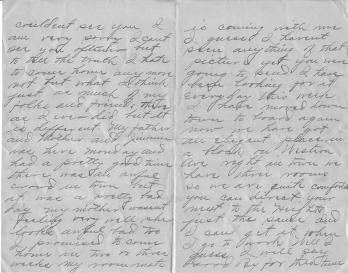 couldent see you I
am very sorry I cant
see you oftener but
to tell the truth I hate
to come home any more
not but what I think
just as much of my
folks and friends there
as I ever did but it
is different. My father
and mother and
was here monday and
had a pretty good time
there was an awful
crowd in town but
it was a pretty bad
day my mother wasent
feeling very well she
looks awful bad too
I promised to come
home in two or three
weeks my room mate
is coming with me
I guess. I havent
seen anything of that
you were
going to send I have
been looking for it
everyday this week.
I have moved down
town to board again
now we have got
an elegant place in
a block on
Ave right in town we
have three rooms
so we are quite comfortable
you can direct your
next to the
just the same and
I can get it when
I go to work Well I
guess I will say
good bye for this time